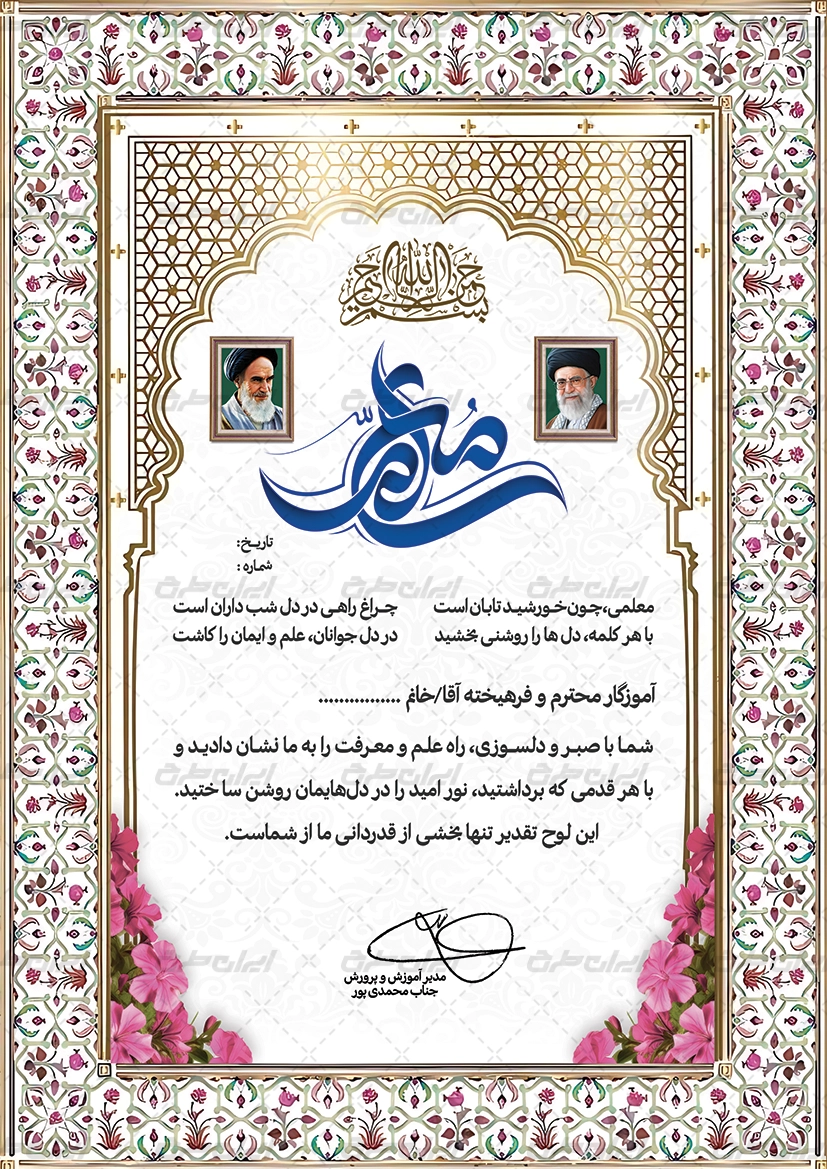 بسم الله الرحمن الرحیم
معلم
تاریـخ:
شماره :
معلمی،چون‌خـورشیـد تابان است چـراغ راهـی در دل شب داران است
با هر کلمه، دل ها را روشنی بخشید در دل جوانان، علم و ایمان را کاشت
آموزگار محترم و فرهیخته آقا/خانم ................
شمـا با صبـر و دلسـوزی، راه علـم و معـرفت را به ما نشـان دادیـد و
با هر قدمی که برداشتید، نور امید را در دل‌هایمان روشن سا ختید.
این لوح تقدیر تنها بخشی از قدردانی ما از شماست.
مدیر آموزش و پرورش
جناب محمدی پور
ایران طرح